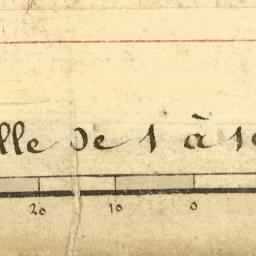 lle de 1 à 1
20 10 0